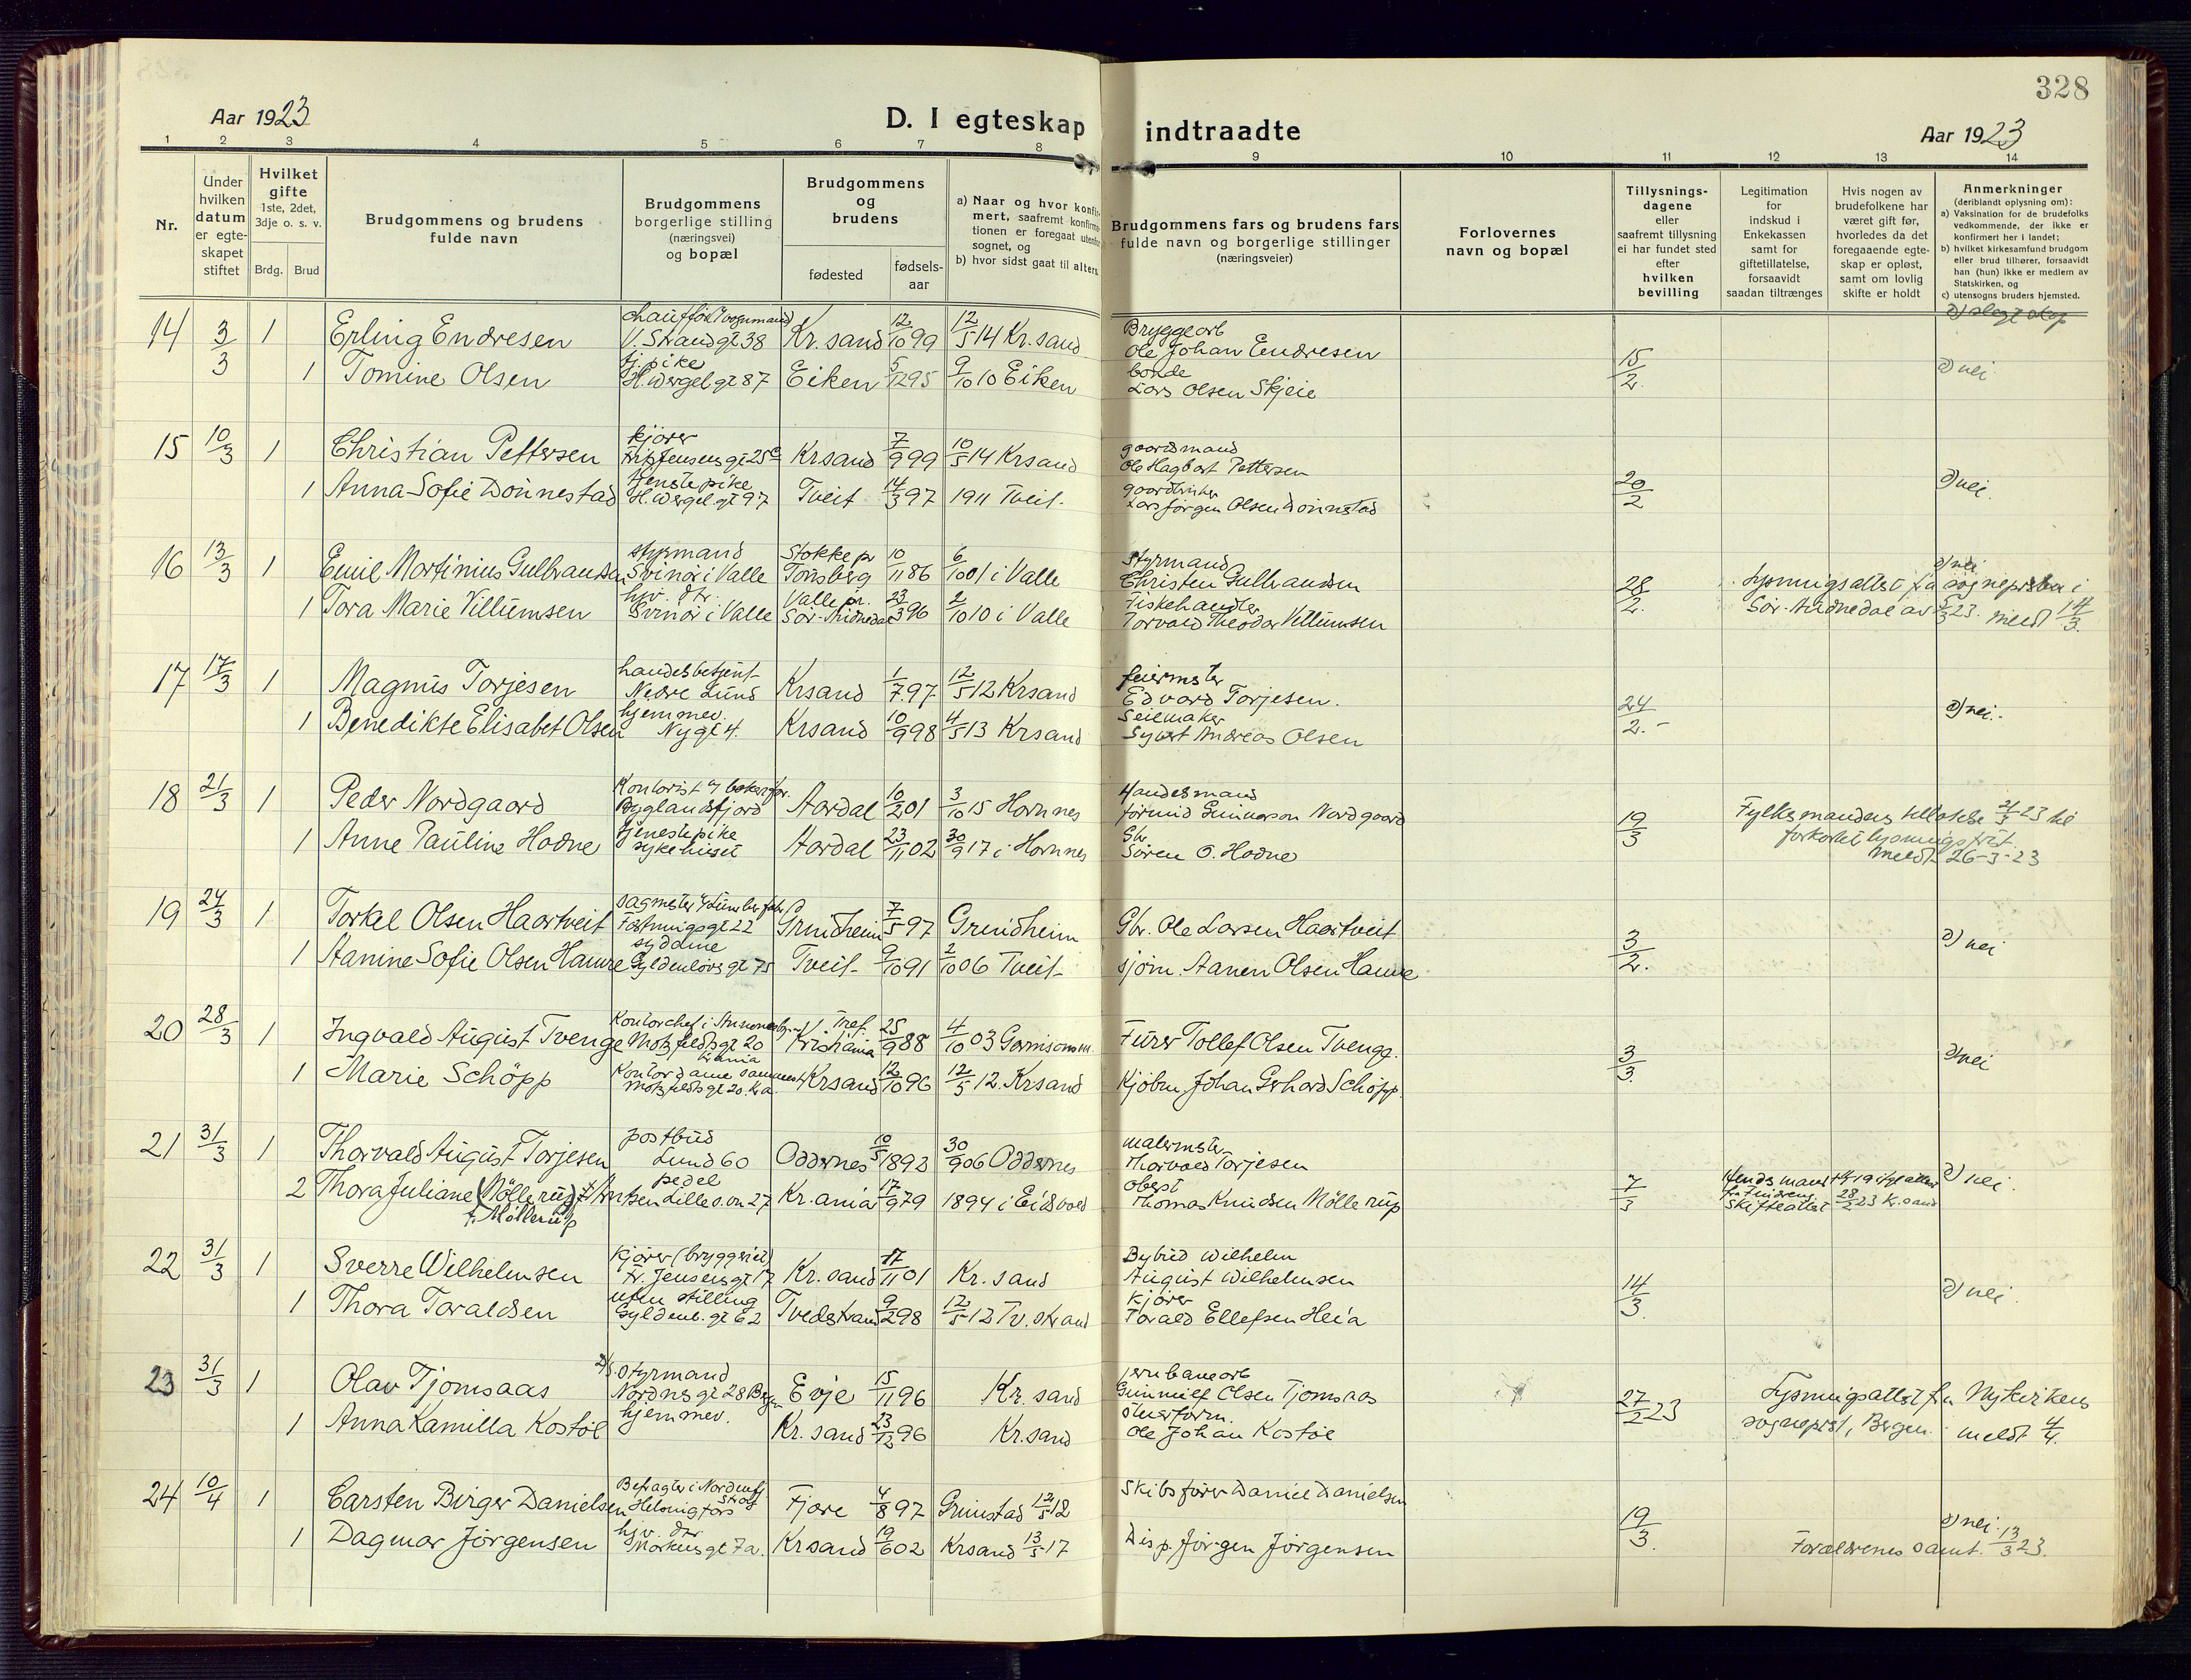 328
Aar 1923
D. I egteskap indtraadte
Aar 1923
1 2 3 4 5 6 7 8 9 10 11 12 13 14
Nr.
Under hvilken datum er egteskapet stiftet
Hvilket gifte 1ste, 2det, 3dje o. s. v.
Brdg. Brud
Brudgommens og brudens fulde navn
Brudgommens borgerlige stilling (næringsvei) og bopæl
Brudgommens og brudens
fødested fødsels-aar
a) Naar og hvor konfir-
mert, saafremt konfirma-
tionen er foregaat utenfor
sognet, og
b) hvor sidst gaat til alters.
Brudgommens fars og brudens fars
fulde navn og borgerlige stillinger
(næringsveier)
Forlovernes
navn og bopæl
Tillysnings-
dagene
eller
saafremt tillysning
ei har fundet sted
efter
hvilken
bevilling
Legitimation
for
indskud i
Enkekassen
samt for
giftetillatelse,
forsaavidt
saadan tiltrænges
Hvis nogen av
brudefolkene har
været gift før,
hvorledes da det
foregaaende egte-
skap er opløst,
samt om lovlig
skifte er holdt
Anmerkninger
(deriblandt oplysning om):
a) Vaksination for de brudefolks
vedkommende, der ikke er
konfirmert her i landet;
b) hvilket kirkesamfund brudgom
eller brud tilhører, forsaavidt
han (hun) ikke er medlem av
Statskirken, og
c) utensogns bruders hjemsted.
14 3/3 1 Erling Endresen V. Strandgt 38 Kr.sand 12/10 99 12/5 14 Kr.sand Bryggearb Ole Johan Endresen 15/2
1 Tomine Olsen tj.pike H. Wergel gt 87 Eiken 5/12 95 9/10 10 Eiken bonde Lars Olsen Skjeie d) nei
15 10/3 1 Christian Pettersen kjører Krsand 7/9 99 10/5 14 Krsand gaardmand Ole Hagbart Pettersen 20/2
1 Anna Sofie Dønnestad tjenstepike H. Wergel. gt 97 Tveit 14/3 97 1911 Tveit. Lars Jørgen Olsen Dønnestad d) nei.
16 13/3 1 Emil Martinius Gulbrandsen styrmand Svinør i Valle Stokke pr Tønsberg 10/11 86 6/10 01 i Valle styrmand Christen Gulbrandsen 28/2. d) nei
1 Tora Marie Villumsen hjv. dtr. Svinør i Valle Valle pr. Sør-Audnedal 23/3 96 2/10 10 i Valle Fiskehandler Torvald Theodor Villumsen Lysningsattest fra sogneprsten i Sør-Audnedal av 5/3 23. meldt 14/3.
17 17/3 1 Magnus Torjesen handelsbetjent Nedre Lund Krsand 1/7 97 12/5 12 Krsand feiermster Edvard Torjesen. 24/2.
1 Benedikte Elisabet Olsen hjemmev. Nygt 4. Krsand 10/9 98 4/5 13 Krsand Seilmaker Syvert Andreas Olsen d) nei.
18 21/3 1 Peder Nordgaard Byglandsfjord Aardal 10/2 01 3/10 15 Hornnes Handelsmand Gunnarson Nordgaard 19/3 Fylkesmandens tillatelse 21/3 23 til forkortet lysningsfrist. meldt 26-3-23
1 Anne Pauline Hodne tjenestepike sykehuset Aardal 23/11 02 30/9 17 i Hornnes Gbr. Søren O. Hodne
19 24/3 1 Torkel Olsen Haartveit Festningsgt 22 Grindheim 7/5 97 Grindheim Gbr. Ole Larsen Haartveit 3/2.
1 Aanine Sofie Olsen Hamre sydame Gyldenløvs gt 75 Tveit 9/10 91 2/10 06 Tveit sjøm. Aanen Olsen Hamre d) nei
20 28/3 1 Ingvald August Tvenge Motzfeldts gt 20 Kr.ania Kristiania 25/9 88 4/10 03 Garnisonsm. Furer Tollef Olsen Tvenge. 3/3.
1 Marie Schöpp Kontordame sammest. Motzfeldts gt 20. Kr.a. Krsand 12/10 96 12/5 12. Krsand Kjøbm Johan Gerhard Schöpp. d) nei
21 31/3 1 Thorvald August Torjesen postbud Lund 60 Oddernes 10/5 1892 30/9 06 Oddernes malermster Thorvald Torjesen 7/3
2 Thora Juliane (Møllerup) f. Møllerup pedel Kr.ania 17/9 79 1894 i Eidsvold oberst Thomas Knudsen Møllerup Skifteattest 28/2 23 Kr.sand d) nei.
22 31/3 1 Sverre Wilhelmsen kjører (bryggeriet) Fr. Jensens gt 17 Kr.sand 17/11 01 Kr.sand Bybud Wilhelm August Wilhelmsen 14/3.
1 Thora Toraldsen uten stilling Gyldenl. gt 62 Tvedstrand 9/2 98 12/5 12 Tv.strand kjører Torald Ellefsen Heia d) nei
23 31/3 1 Olav Tjomsaas styrmand Nordnesgt 28 Bergen Evje 15/11 96 Kr.sand jernbanearb Gunnulf Olsen Tjomsaas 27/2 23 Lysningsattest fra Nykirkens sogneprst, Bergen. meldt 4/4.
1 Anna Kamilla Kostøl hjemmev. Kr.sand 23/12 96 Kr.sand Ole Johan Kostøl
24 10/4 1 Carsten Birger Danielsen Helsingfors Fjære 4/8 97 Grimstad 12/5 12 Skibsfører Daniel Danielsen 19/3.
1 Dagmar Jørgensen hjv. dtr Markensgt 7a. Krsand 19/6 02 Krsand 13/5 17 Disp. Jørgen Jørgensen d) nei. Forældrenes samt. 13/3 23.